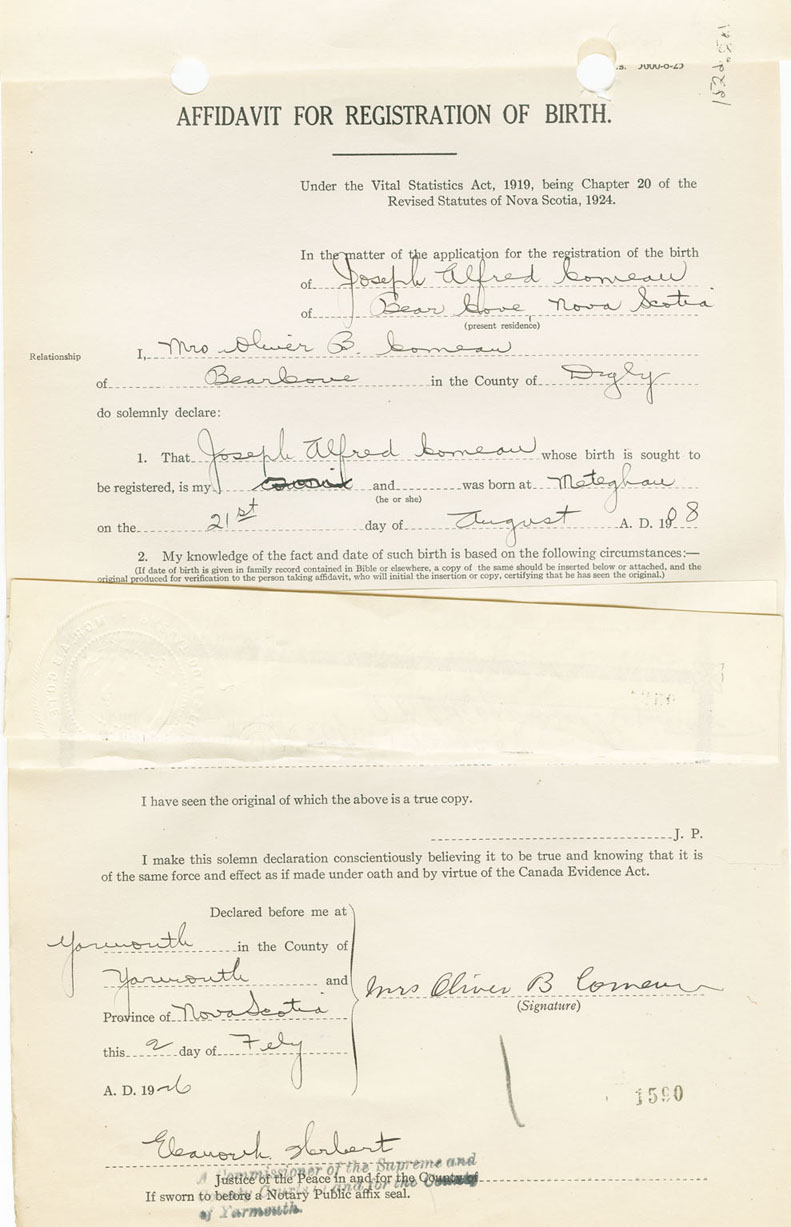 AFFIDAVIT FOR REGISTRATION OF BIRTH.
Under the Vital Statistics Act, 1919, being Chapter 20 of the
Revised Statutes of Nova Scotia, 1924.
In the matter of the application for the registration of the birth
of Joseph Alfred Comeau
of Bear Cove Nova Scotia
(present residence)
Relationship
I, Mrs Oliver B. Comeau
of Bear Cove in the County of Digby
do solemnly declare:
1. That Joseph Alfred Comeau whose birth is sought to
be registered, is my and was born at Meteghan
(he or she)
on the 21st day of August A. D. 1908
2. My knowledge of the fact and date of such birth is based on the following circumstances:—
(If date of birth is given in family record contained in Bible or elsewhere, a copy of the same should be inserted below or attached, and the
original produced for verification to the person taking affidavit, who will initial the insertion or copy, certifying that he has seen the original.)
I have seen the original of which the above is a true copy.
J. P.
I make this solemn declaration conscientiously believing it to be true and knowing that it is
of the same force and effect as if made under oath and by virtue of the Canada Evidence Act.
Declared before me at
Yarmouth in the County of
Yarmouth and
Province of Nova Scotia
this 2 day of Feby
A. D. 1926
Mrs Oliver B Comeau
(Signature)
1590
Eleanor h. Herbert
A Commissioner of the Supreme and
Justice of the Peace in and for the County of
If sworn to before a Notary Public affix seal.
of Yarmouth